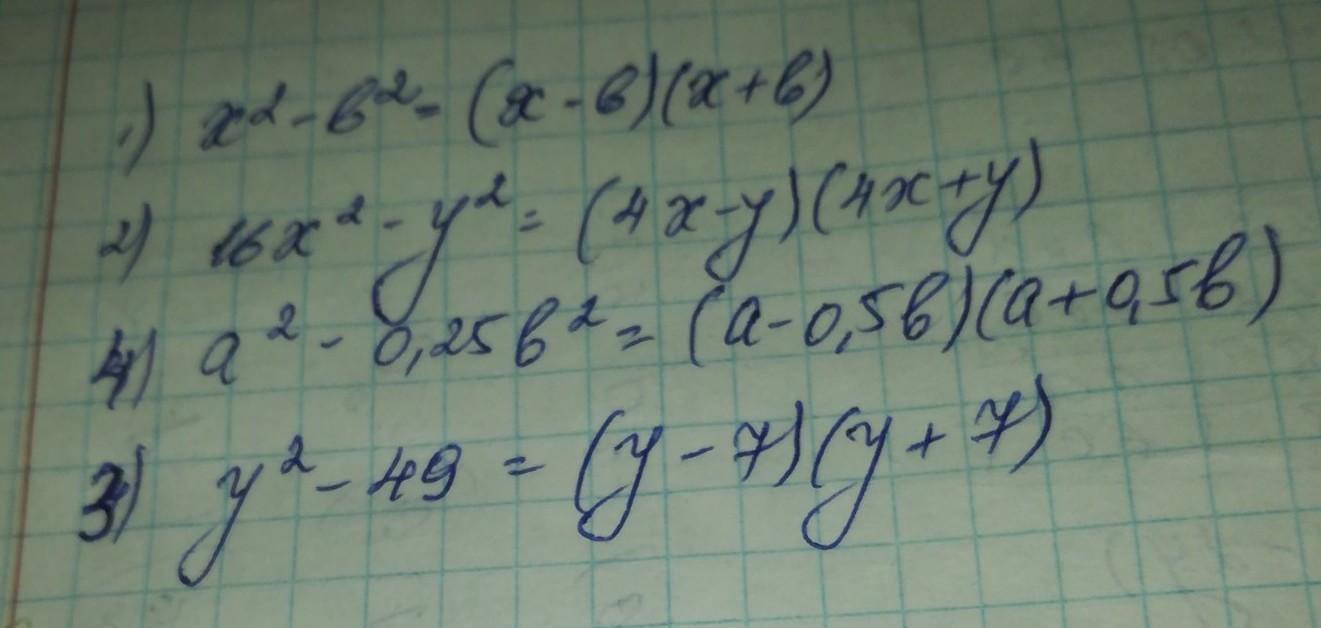 1) x² - b² = (x - b)(x + b)
2) 16x² - y² = (4x - y)(4x + y)
4) a² - 0,25b² = (a - 0,5b)(a + 0,5b)
3) y² - 49 = (y - 7)(y + 7)